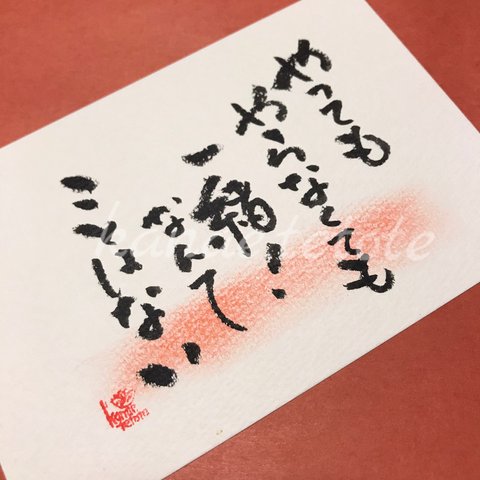 やっても
やらなくても
一緒!
なんて
ことはない
kanae teiote